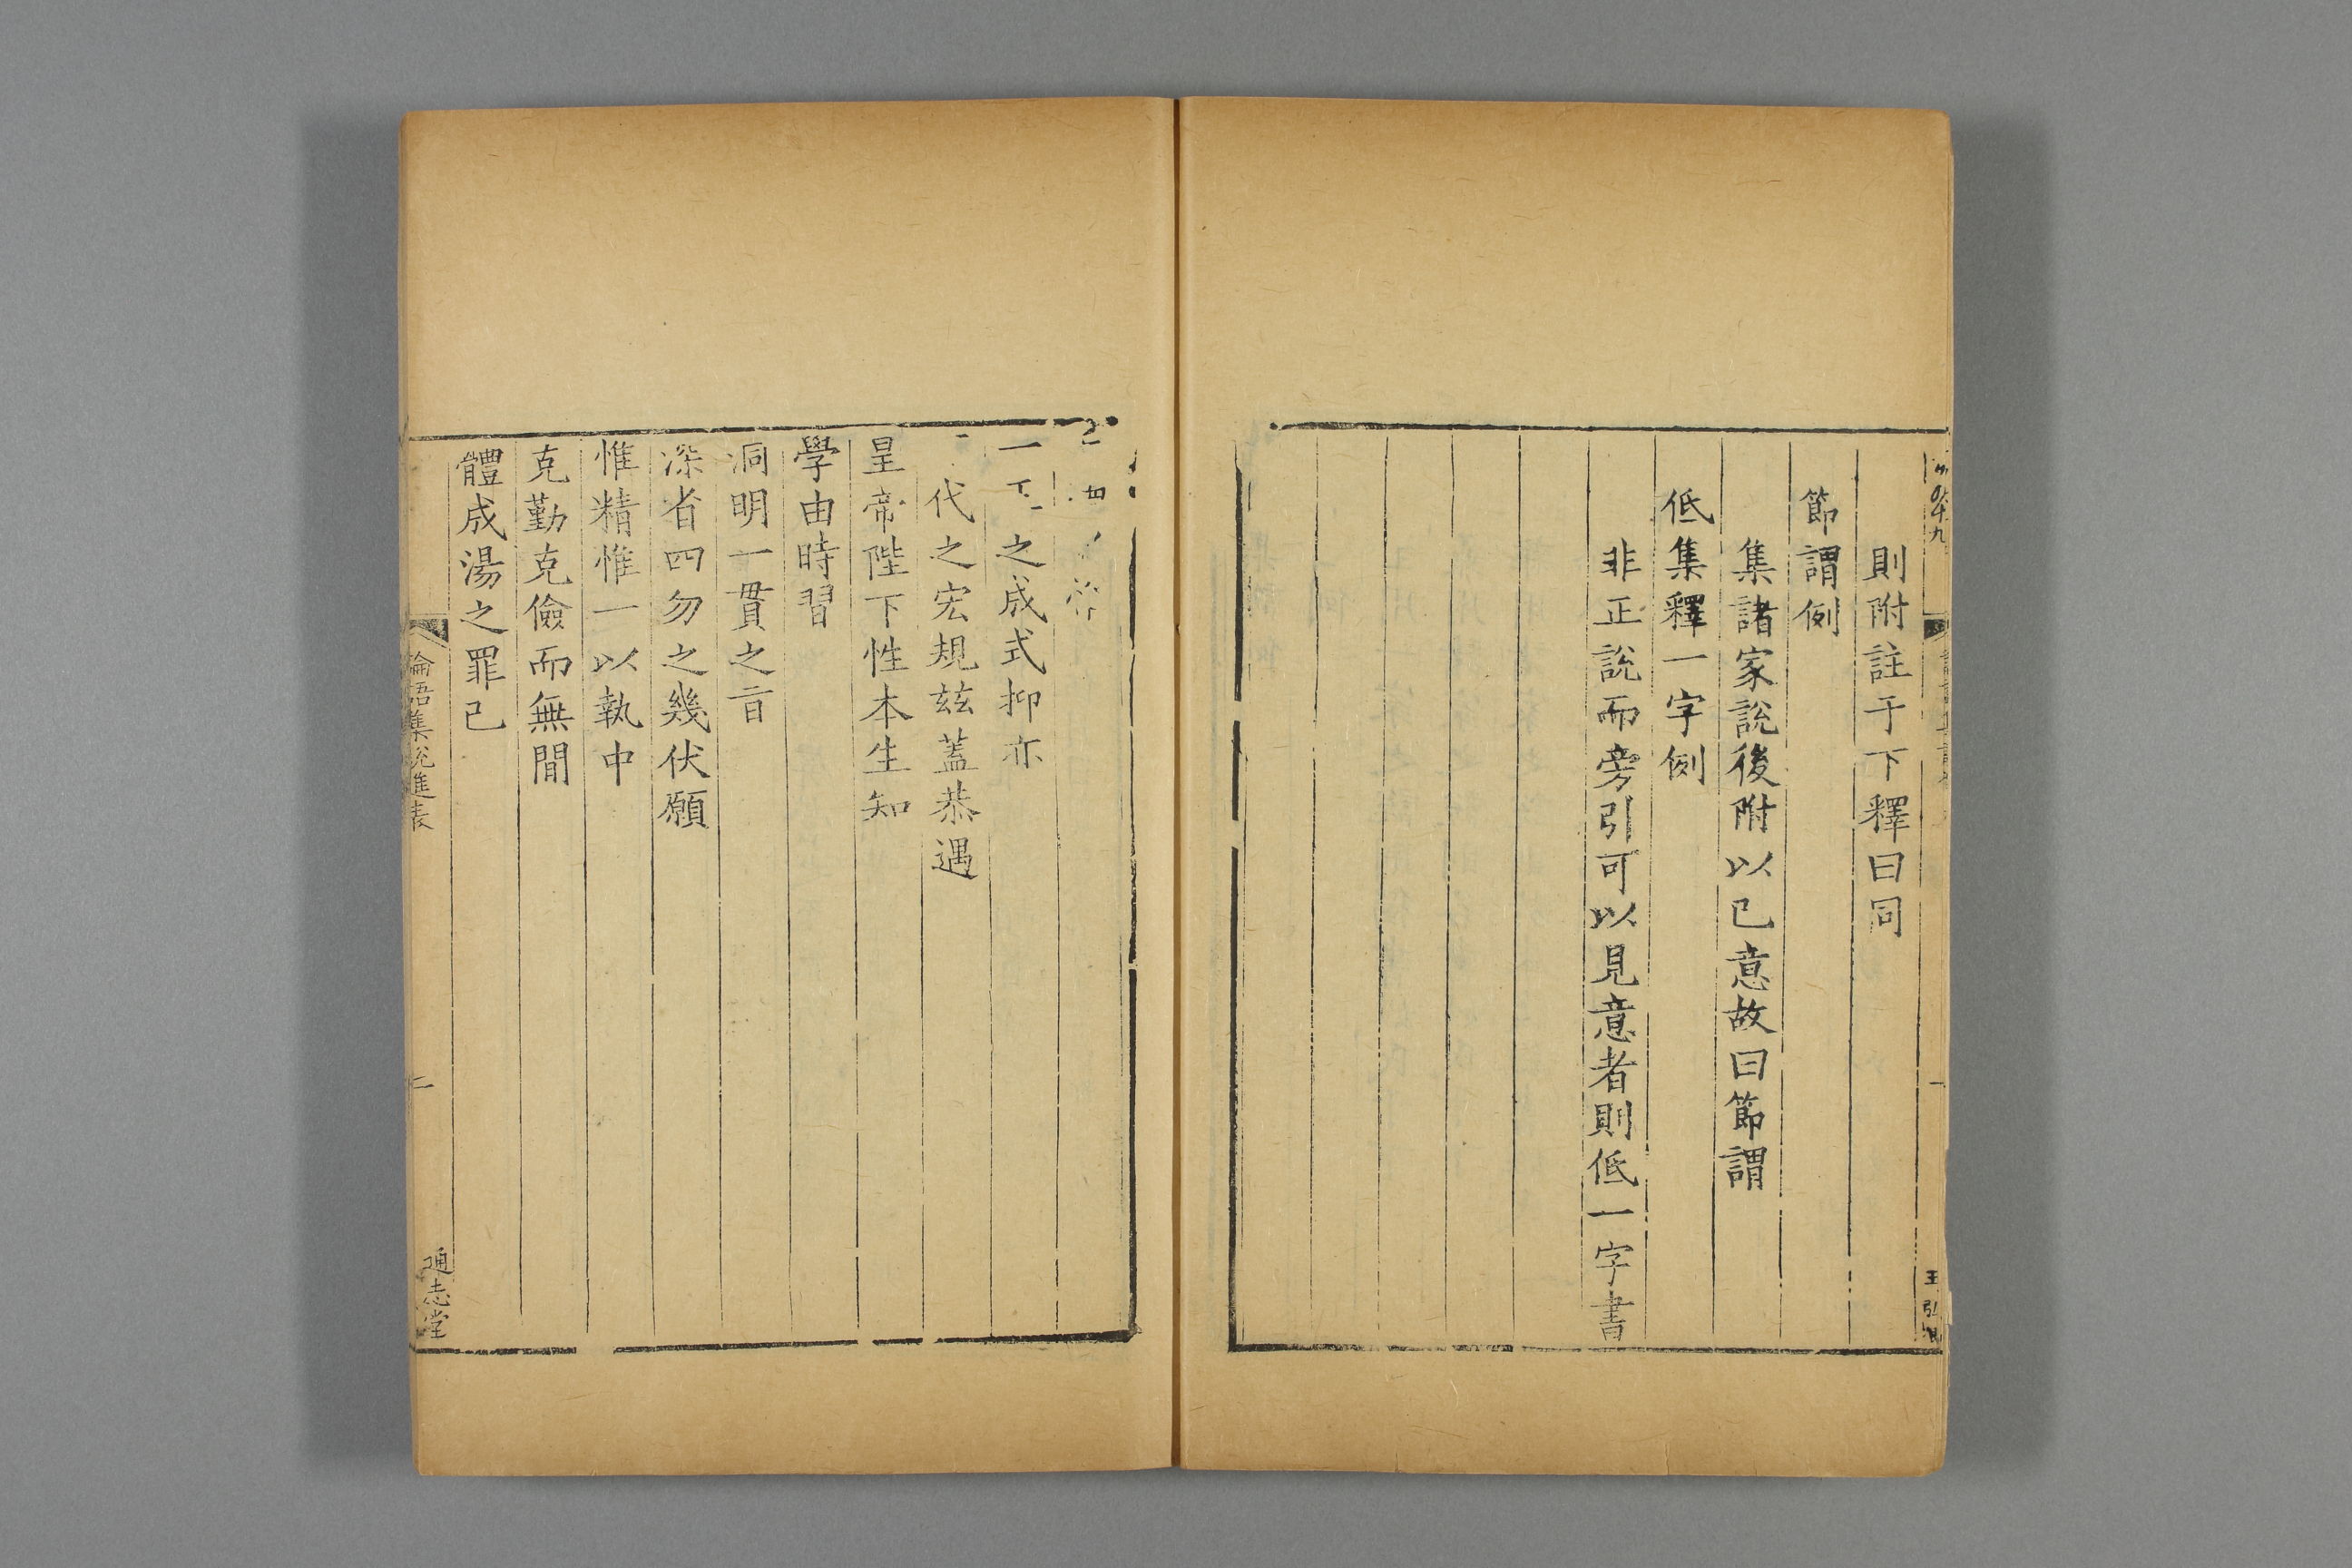 則附註于下釋曰同
節謂例
集諸家說後附以已意故曰節謂
低集釋一字例
非正說而旁引可以見意者則低一字書
王
之成式抑亦
代之宏規兹蓋恭遇
皇帝陛下性本生知
學由時習
洞明一貫之㫖
深省四勿之幾伏願
惟精惟一以執中
克勤克儉而無間
體成湯之罪已
論語集説進表
二
通志堂